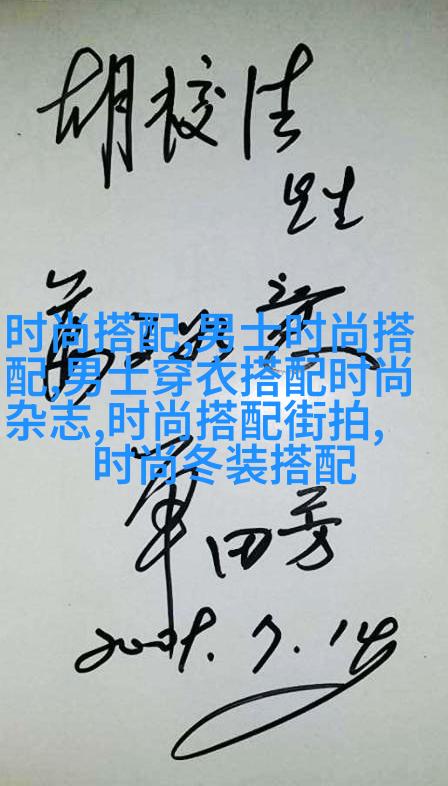 胡
先生
时尚搭配,男士时尚搭
配,男士穿衣搭配时尚
杂志,时尚搭配街拍,
时尚冬装搭配
单田芳